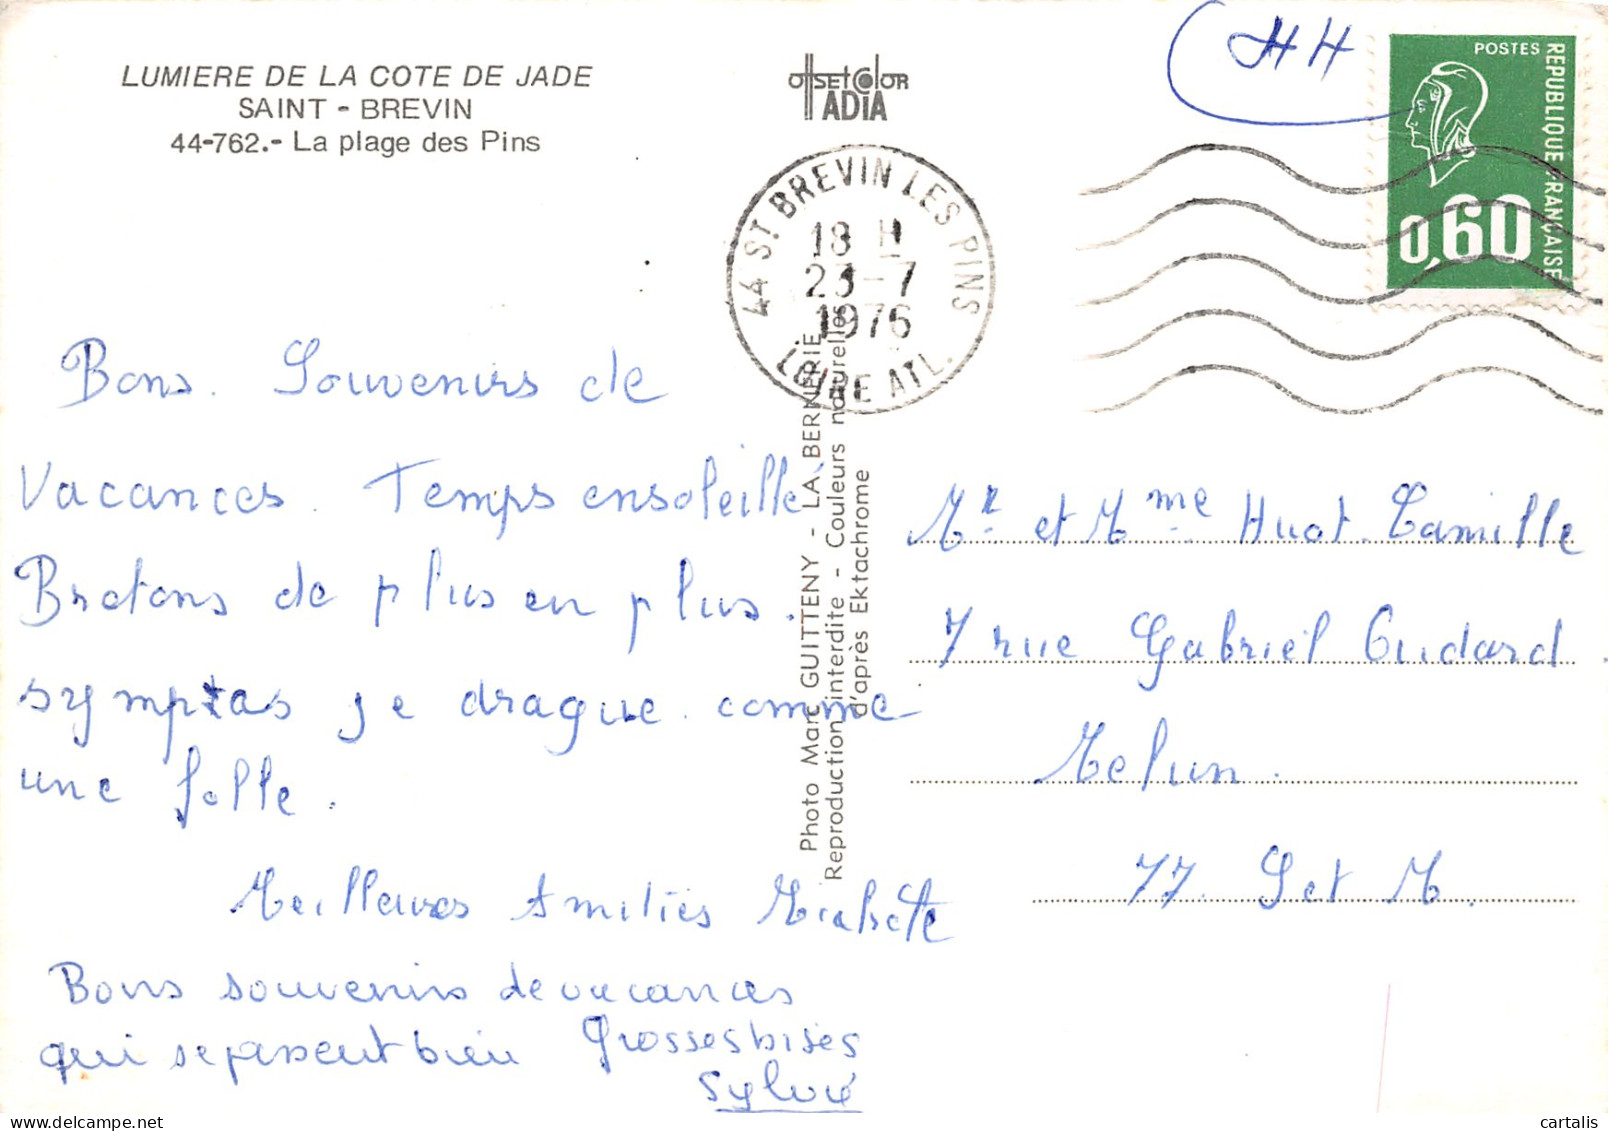 LUMIERE DE LA COTE DE JADE
SAINT - BREVIN
44-762.- La plage des Pins
offset color
IADIA
HH
POSTES
REPUBLIQUE FRANÇAISE
0,60
44 ST. BREVIN LES PINS
18 H
23-7
1976
LOIRE ATL.
Bons. Souvenirs de
Vacances. Temps ensoleillé
Bretons de plus en plus.
sympas je drague comme
une folle.
Meilleures Amitiés
Bons souvenirs de vacances
qui se passent bien Grosses bises
Sylvie
Photo Marc GUITTENY - LA BERNERIE
Reproduction interdite - Couleurs naturelles
d'après Ektachrome
Mr et Mme Huot Camille
7 rue Gabriel Oudard
Melun.
77. S et M.
cartalis
www.delcampe.net